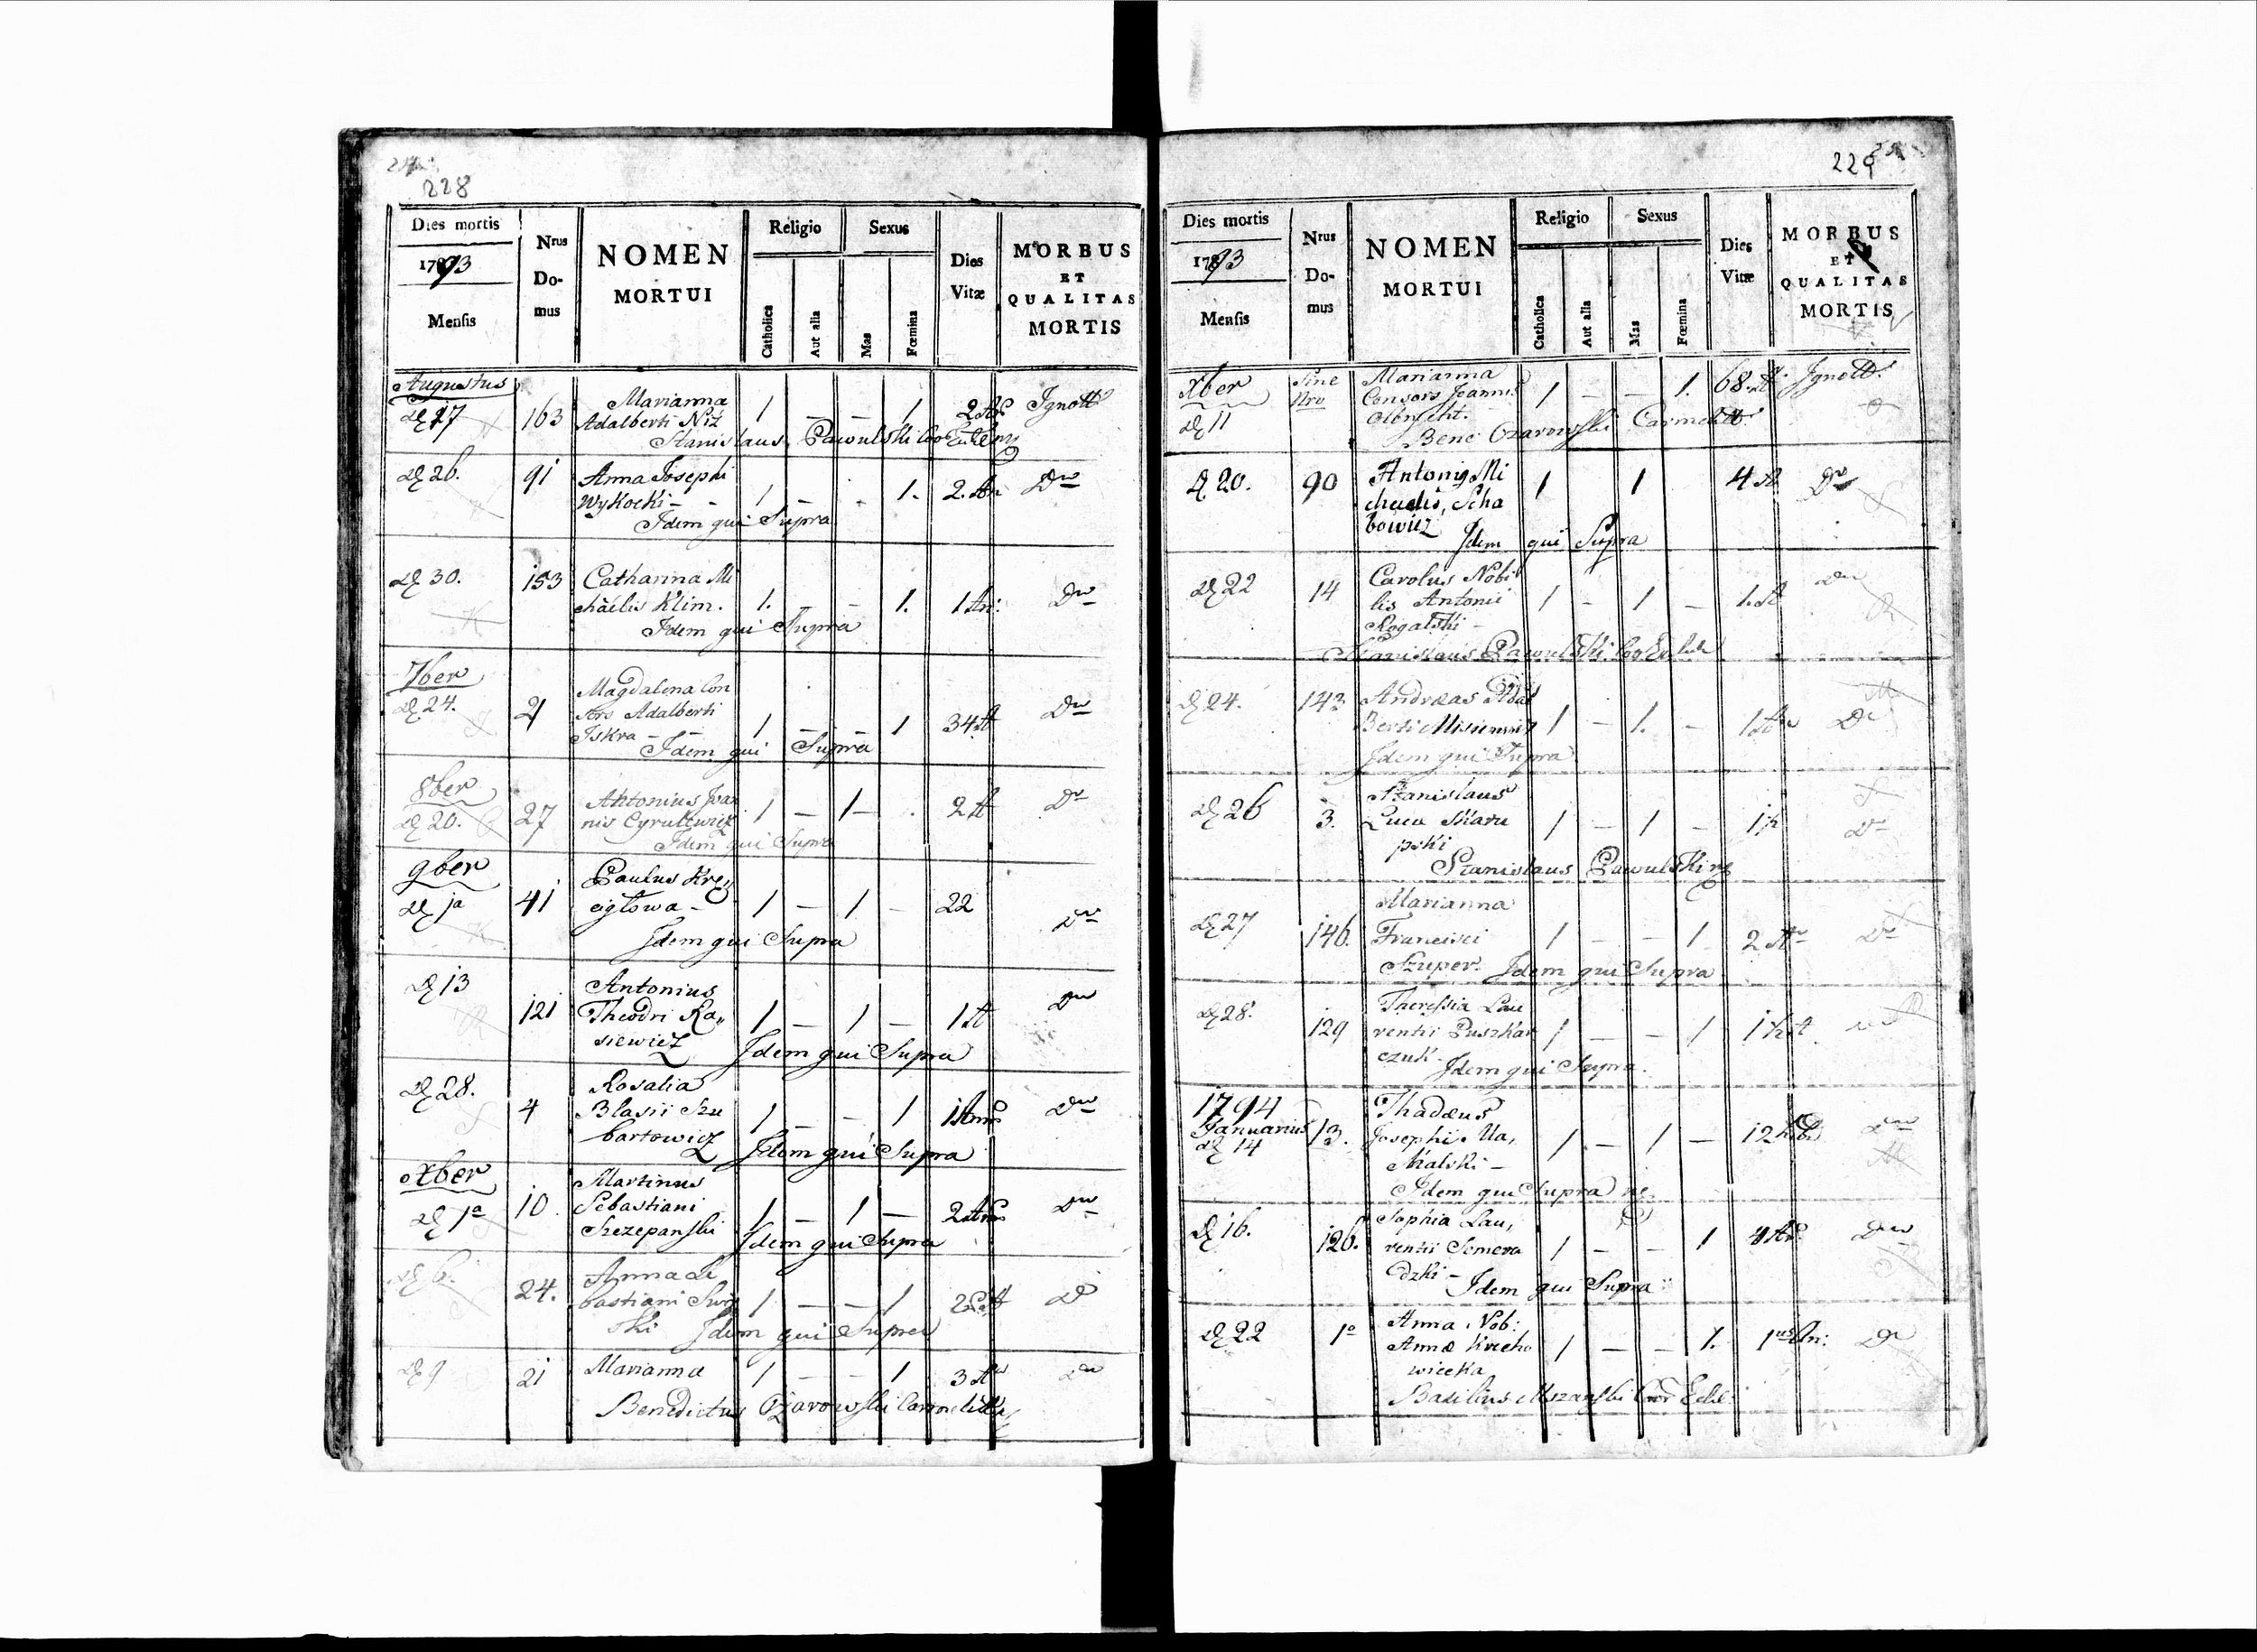 228
Dies mortis
1793
Mensis
Nrus
Do-
mus
NOMEN
MORTUI
Religio
Catholica
Aut alia
Sexus
Mas
Fœmina
Dies
Vitæ
MORBUS
ET
QUALITAS
MORTIS
Augustus
17 163 Marianna 1 — — 1 Ignott
Adalberti Niz
Stanislaus Pawulski
26. 91 Anna Josephi 1 — 1. 2. An
Wykocki
Idem qui Supra
30. 153 Catharina Mi 1. — — 1. 1 An:
chäelis Klim.
Idem qui Supra
7ber
24. 21 Magdalena Con
sors Adalberti 1 — — 1 34 A
Iskra
Idem qui Supra
8ber
20. 27 Antonius Joan 1 — 1 — 2 A
nis Cyrulewicz
Idem qui Supra
9ber
1a 41 Paulus Krę„ 1 — 1 — 22
cigłowa
Idem qui Supra
13 121 Antonius
Theodri Ra„ 1 — 1 — 1 A
siewicz
Idem qui Supra
28. 4 Rosalia
Blasii Szu 1 — — 1
bartowicz
Idem qui Supra
Xber
1a 10 Martinus
Sebastiani 1 — 1 —
Szczepanski
Idem qui Supra
6. 24. Anna Se
bastiani 1 — — 1
ski
Idem qui Supra
9 21 Marianna 1 — — 1 3
Benedictus Ozarowski Carmelitta
229
Dies mortis
1793
Mensis
Nrus
Do-
mus
NOMEN
MORTUI
Religio
Catholica
Aut alia
Sexus
Mas
Fœmina
Dies
Vitæ
MORBUS
ET
QUALITAS
MORTIS
Xber Sine Marianna 1 — — 1. 68. A Ignott:
Nro Consors Joannis
11 Olbrycht.
Bene Ozarowski Carmelitt:
20. 90 Antonig Mi 1 1 4 A
chaelis, Scha
bowicz
Idem qui Supra
22 14 Carolus Nobi
lis Antonii 1 — 1 — 1. A
Rogalski
Stanislaus Pawulski
24. 143 Andræas Adal
Berti 1 — 1. —
Idem qui Supra
26 3. Stanislaus
Luca Skaru 1 — 1 —
pski
Stanislaus Pawulski
27 146. Marianna
Francisci 1 — — 1 2
Szuper. Idem qui Supra
28. 129 Theressia Lau
rentii Puszkar 1 — — 1
czuk
Idem qui Supra.
1794
Januarius
14 13. Thadæus
Josephi Ma, 1 — 1 — 12
kalski
Idem qui Supra
16. 126. Sophia Lau,
rentii Semera 1 — — 1 4
dzki
Idem qui Supra
22 1o Anna Nob:
Annæ Krecho 1 — — 1. 1us An:
wiecka
Basilius